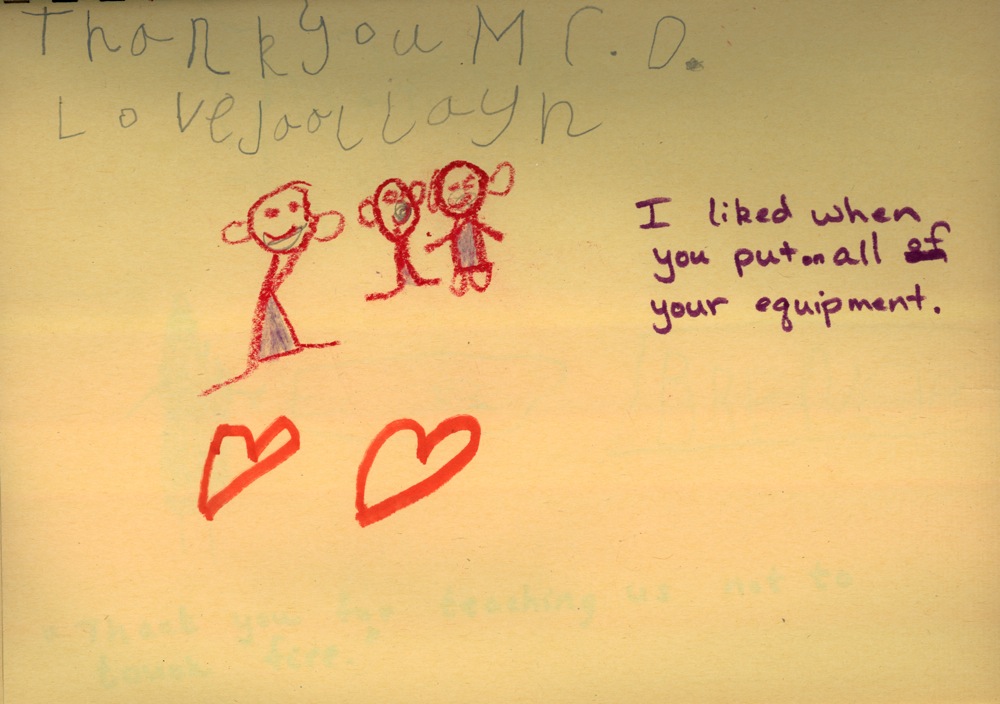 Thank you Mr. D.
Love
I liked when
you put on all of
your equipment.
"Thank you for teaching us not to
touch fire."